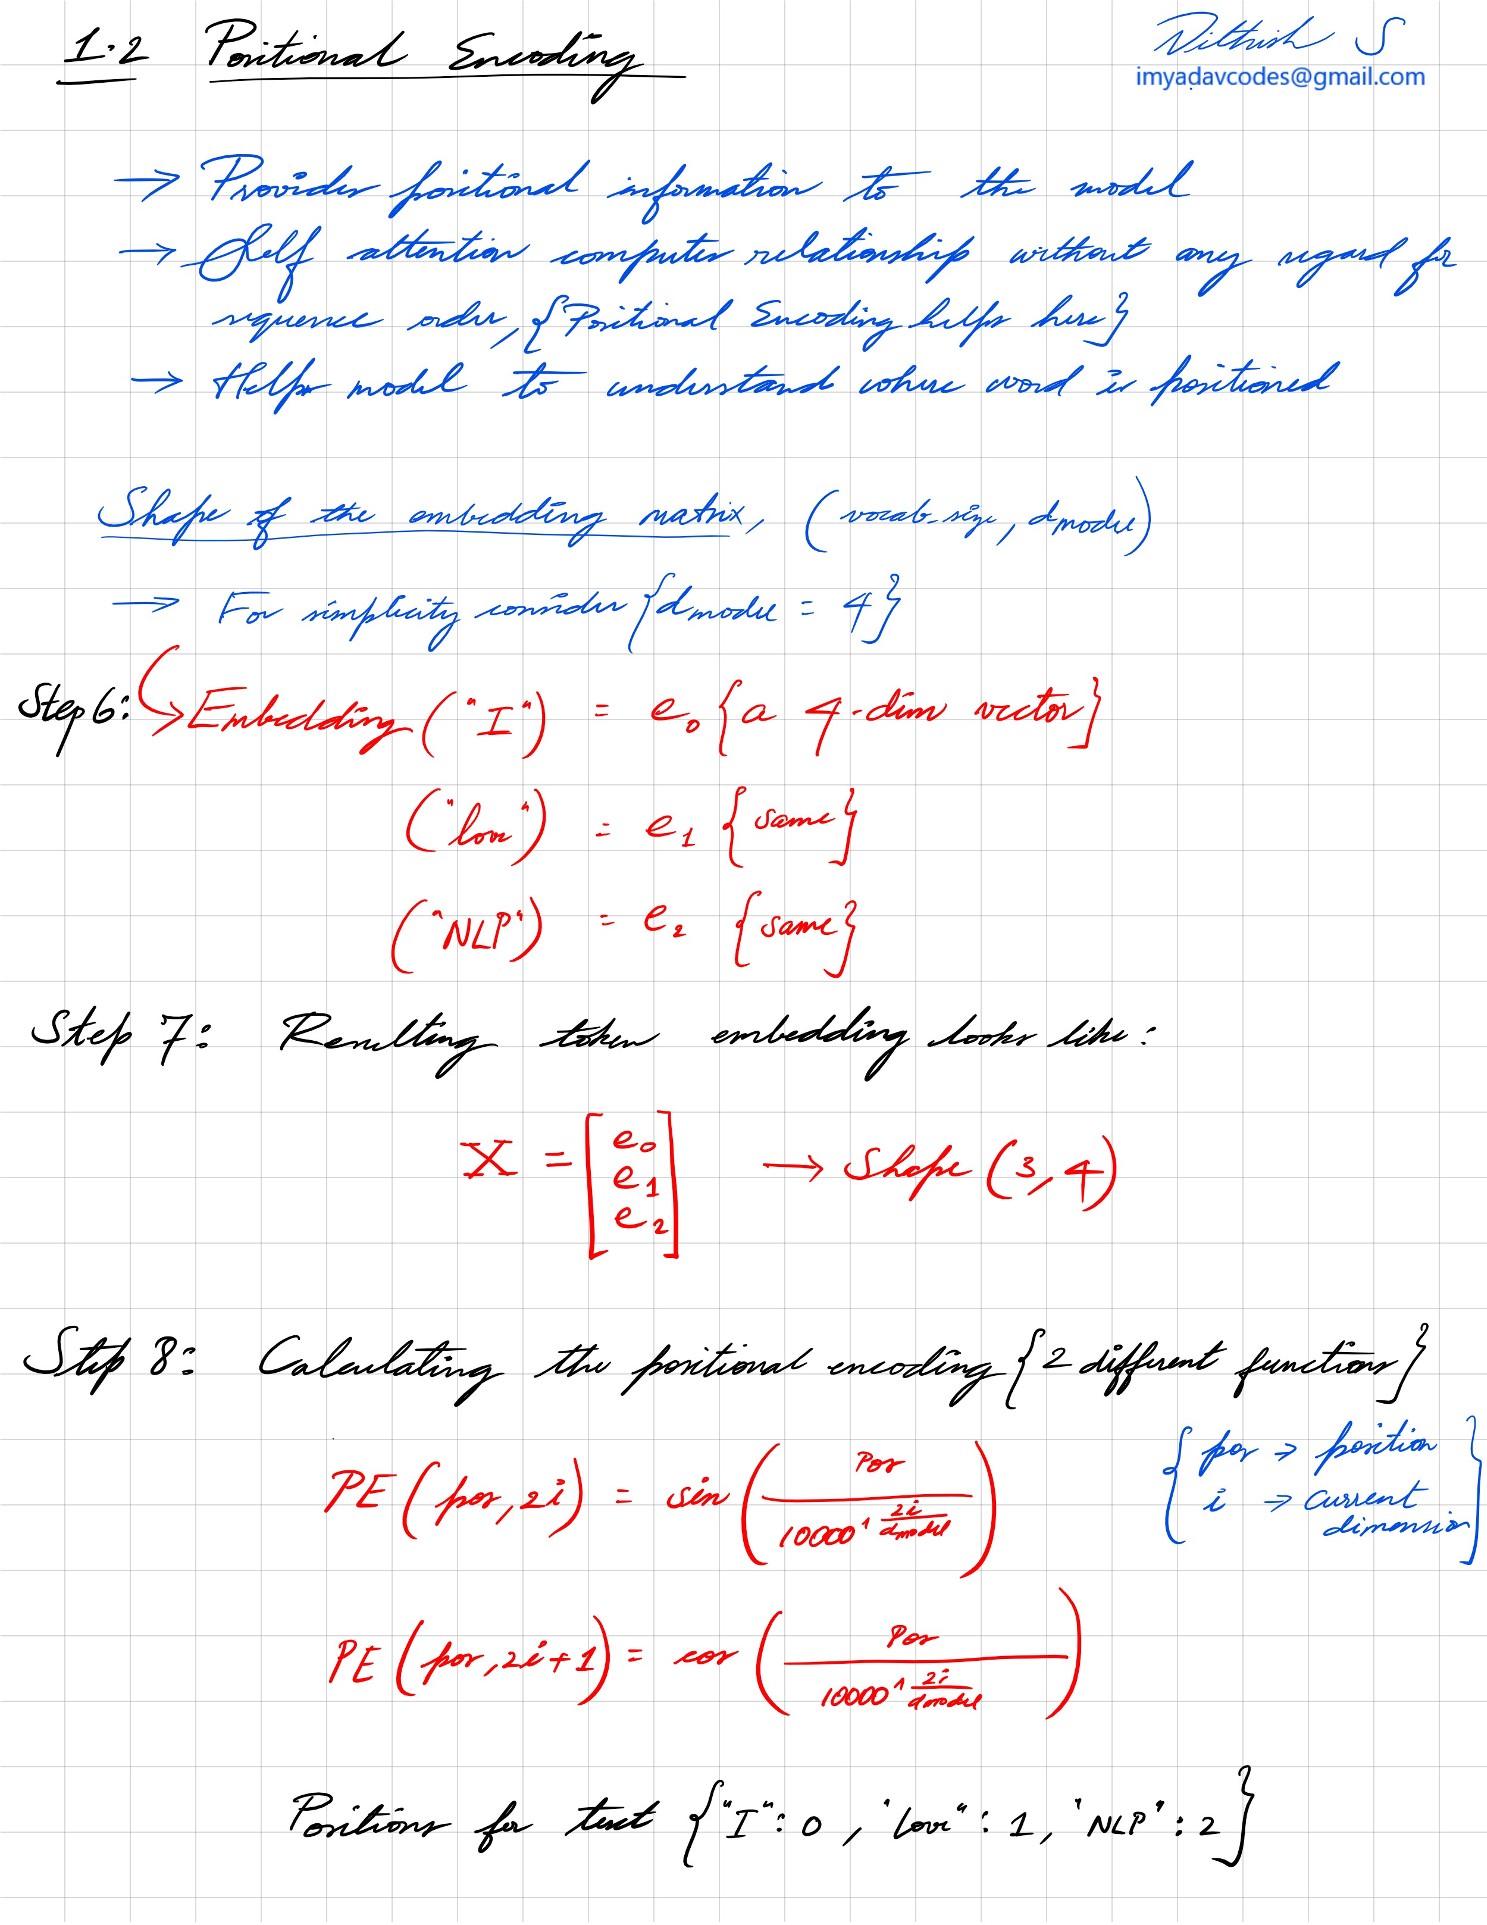 1.2 Positional Encoding
Dithish S
imyadavcodes@gmail.com
→ Provides positional information to the model
→ Self attention computes relationship without any regard for
sequence order, {Positional Encoding helps here}
→ Helps model to understand where word is positioned
Shape of the embedding matrix, (vocab_size, d model)
→ For simplicity consider {d model = 4}
Step 6: Embedding ("I") = e₀ {a 4-dim vector}
("love") = e₁ {same}
("NLP") = e₂ {same}
Step 7: Resulting token embedding looks like:
X = [e₀
e₁
e₂] → Shape (3,4)
Step 8: Calculating the positional encoding {2 different functions}
PE (pos, 2i) = sin (Pos / 10000^(2i/dmodel))
{pos → position
i → current
dimension}
PE (pos, 2i+1) = cos (Pos / 10000^(2i/dmodel))
Positions for text {"I": 0, "love": 1, "NLP": 2}